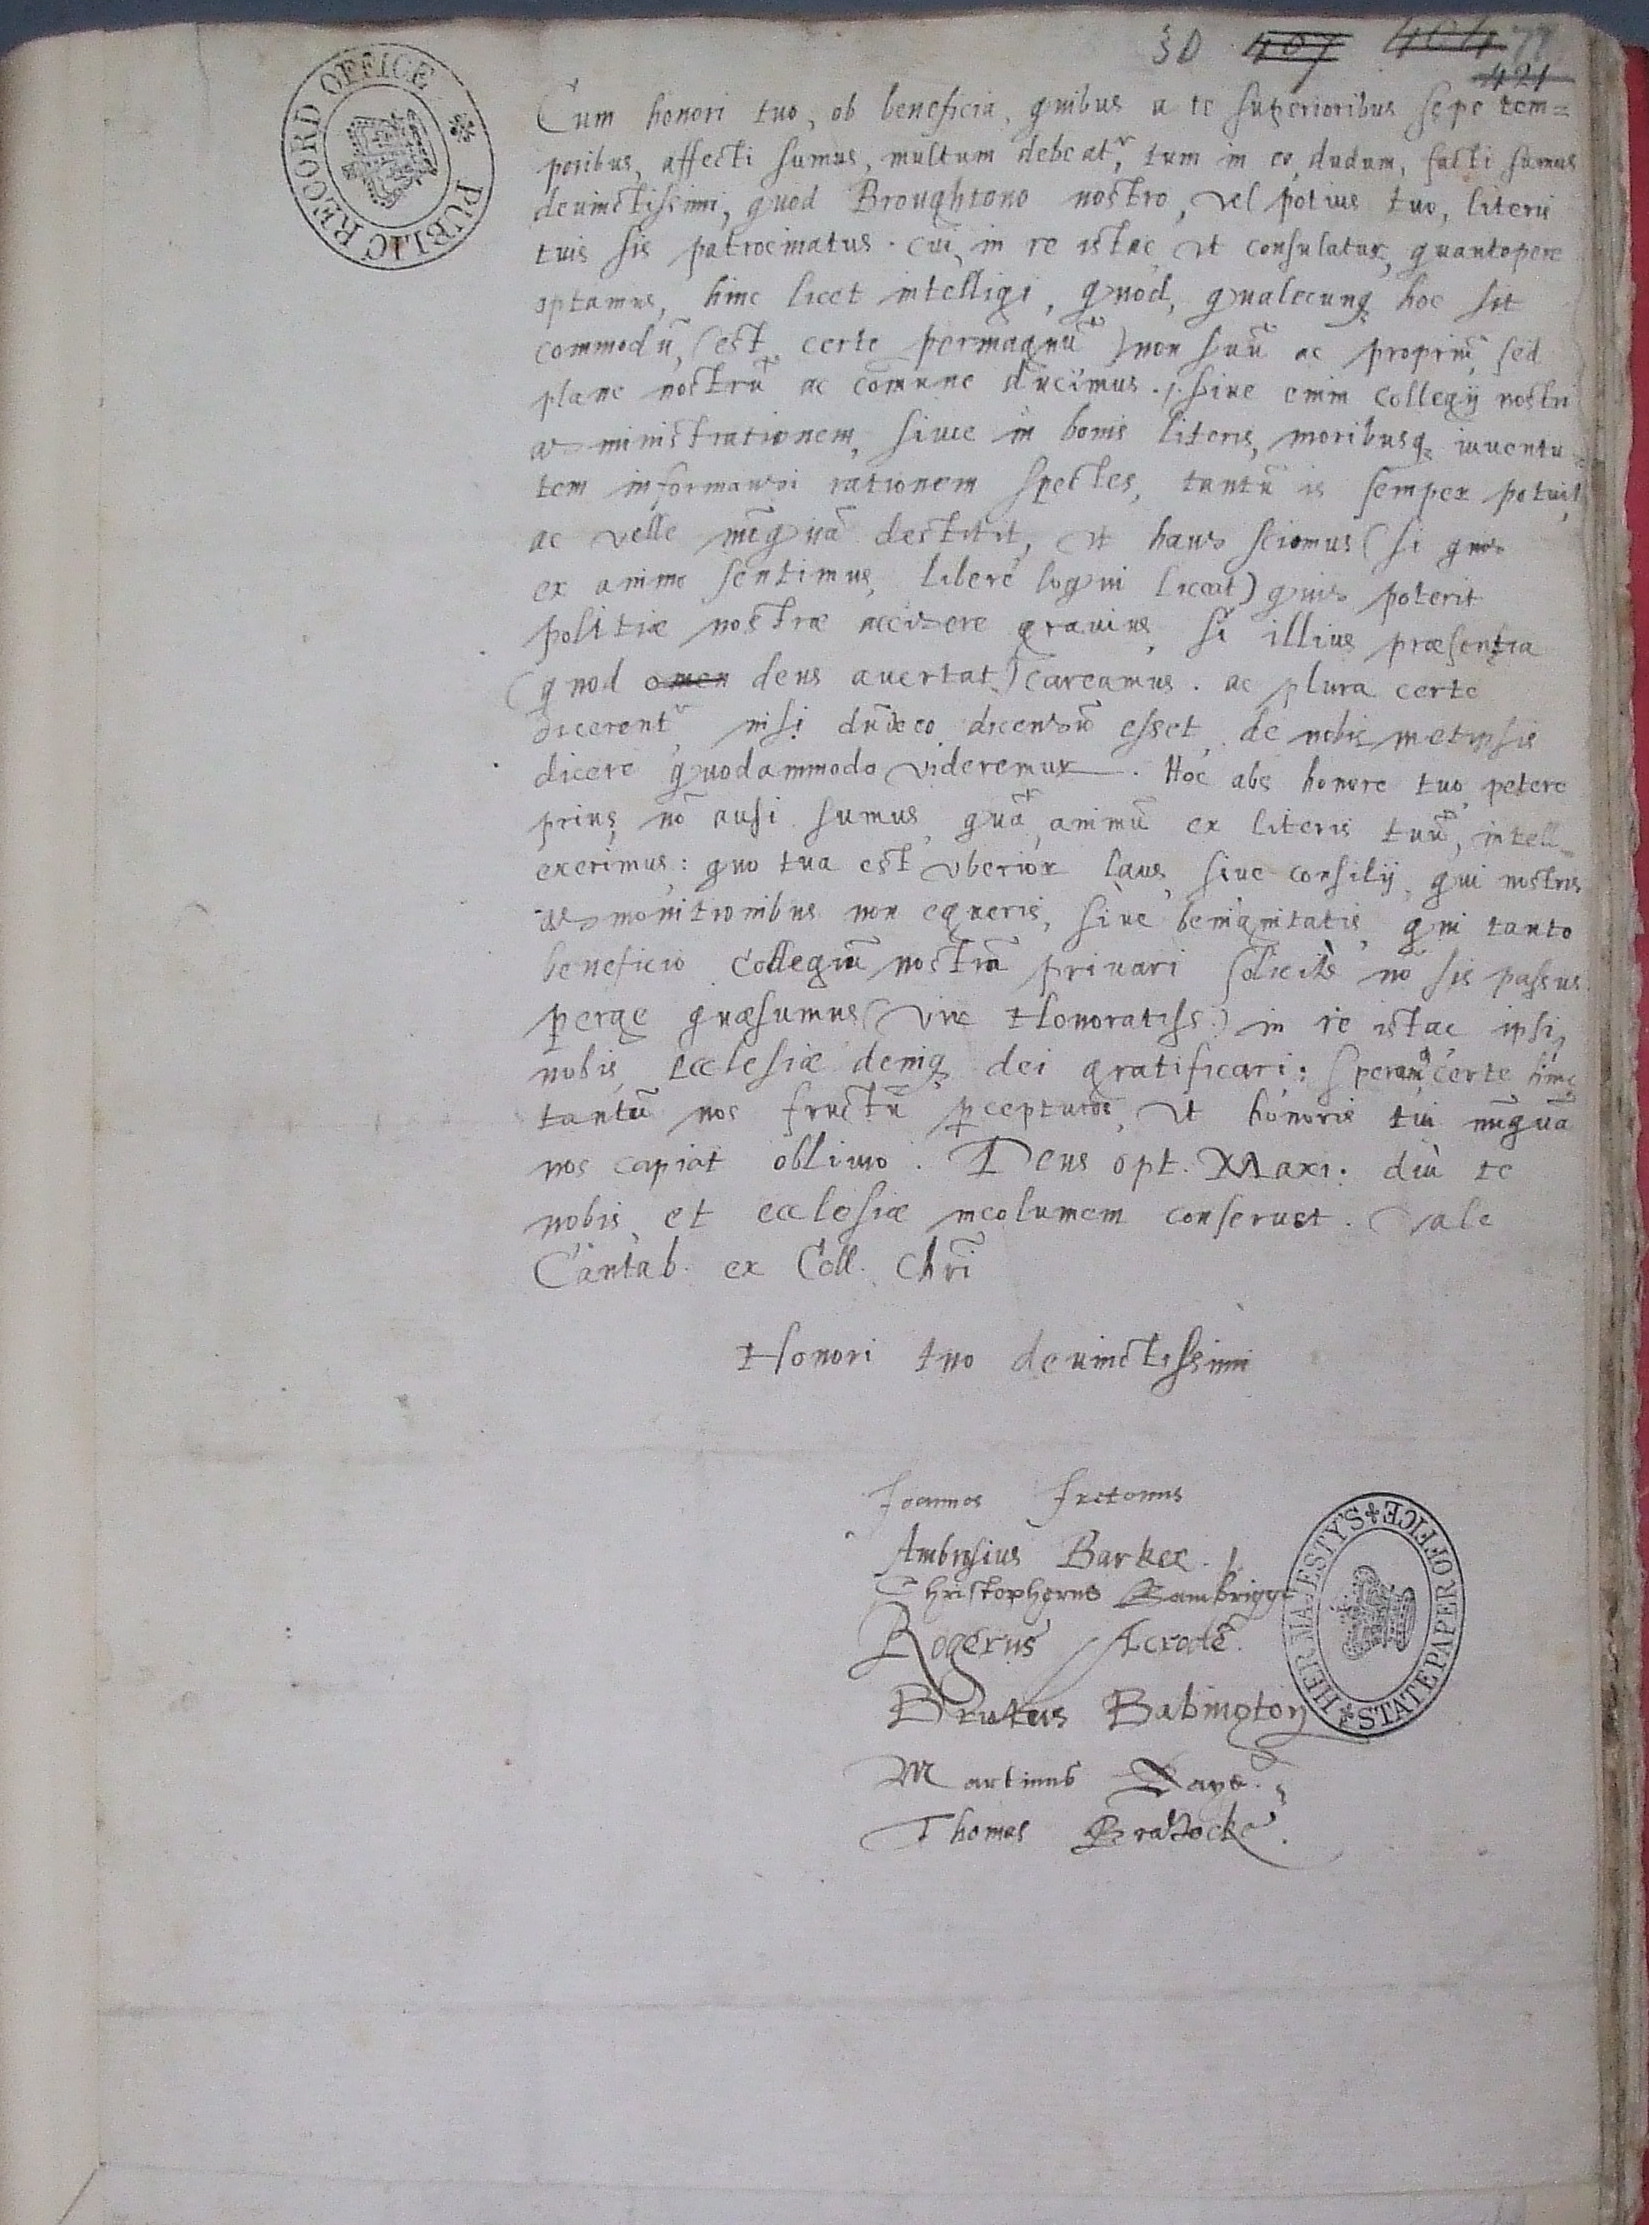 30 407 404 77
421
PUBLIC RECORD OFFICE
Cum honori tuo, ob beneficia, quibus a te superioribus sępe tem=
poribus, affecti sumus, multum debeatr, tum in eo, dudum, facti sumus
deuinctissimi, quod Broughtono nostro, vel potius tuo, literis
tuis sis patrocinatus. cui, in re istac, vt consulatur, quantopere
optamus, hinc licet intelligi, quod, qualecunq hoc sit
commodū, (est certe permagnū) non suū ac propriū, sed
plane nostrū ac comune ducimus. siue enim collegij nostri
administrationem, siue in bonis literis, moribusq iuuentu=
tem informandi rationem spectes, tantū is semper potuit,
ac velle nūquā destitit, vt haud sciamus (si quod
ex animo sentimus, libere loqui liceat) quid poterit
politiæ nostræ accidere grauius, si illius præsentia
(quod omen deus auertat) careamus. ac plura certe
dicerentr, nisi dū de eo dicendū esset, de nobis metipsis
dicere quodammodo videremur. Hoc abs honore tuo petere
prius, nō ausi sumus, quā animū ex literis tuū, intell=
exerimus: quo tua est vberior laus, siue consilij, qui nostris
admonitionibus non egueris, siue benignitatis, qui tanto
beneficio collegiū nostrū priuari solicitè nō sis passus.
perge quæsumus (vir Honoratiss.) in re istac ipsi,
nobis, Ecclesiæ deniq dei gratificari: certe hinc
tantū nos fructū pcepturos, vt honoris tui nūquā
nos capiat obliuio. Deus opt. Maxi: diù te
nobis, et ecclesiæ incolumem conseruet. Vale
Cantab. ex Coll. Chri
Honori tuo deuinctissimi
Joannes Fretonus
Ambrosius Barker.
Christopherus Bambrigge
Rogerus Acrode.
Brutus Babington
Martinus Daye.
Thomas Bradocke.
HER MAJESTY'S STATE PAPER OFFICE